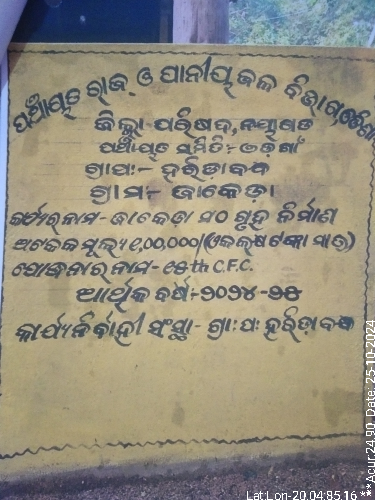 ପଞ୍ଚାୟତ ରାଜ ଓ ପାନୀୟ ଜଳ ବିଭାଗ, ଓଡିଶା
ଜିଲ୍ଲା ପରିଷଦ, ନୟାଗଡ
ପଞ୍ଚାୟତ ସମିତି:- ଓଡ଼ଗାଁ
ଗ୍ରା.ପଃ- ହରିଡ଼ାବନ୍ଧ
ଗ୍ରାମ- ଜାକେଡ଼ା
କାର୍ଯ୍ୟର ନାମ- ଜାକେଡ଼ା ସଠ ଗୃହ ନିର୍ମାଣ
ଅଟକଳ ମୂଲ୍ୟ ୧,୦୦,୦୦୦/(ଏକଲକ୍ଷ ଟଙ୍କା ମାତ୍ର)
ଯୋଜନାର ନାମ- ୧୫th C.F.C.
ଆର୍ଥିକ ବର୍ଷ:- ୨୦୨୪-୨୫
କାର୍ଯ୍ୟନିର୍ବାହୀ ସଂସ୍ଥା- ଗ୍ରାଃପଃ ହରିଡ଼ାବନ୍ଧ
Lat:Lon-20.04:85.16 ***Acur:24.90, Date: 25-10-2024